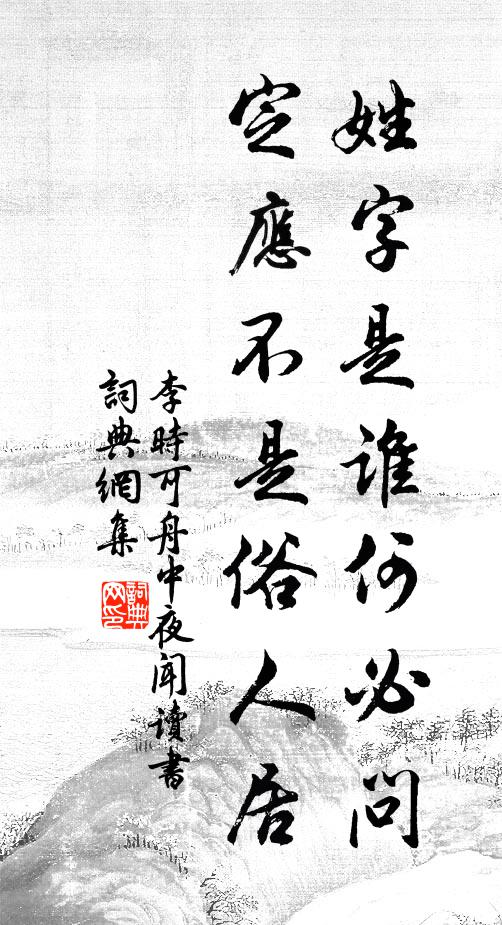 姓字是誰何必問
定應不是俗人居
李時可舟中夜聞讀書
詞典網集
詞典网印